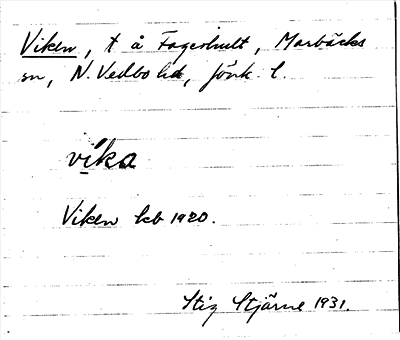 Viken, t å Fagerhult, Marbäcks
sn, N. Vedbo hd, Jönk. l.
ví̱ka
Viken kb 1920.
Stig Stjärne 1931.